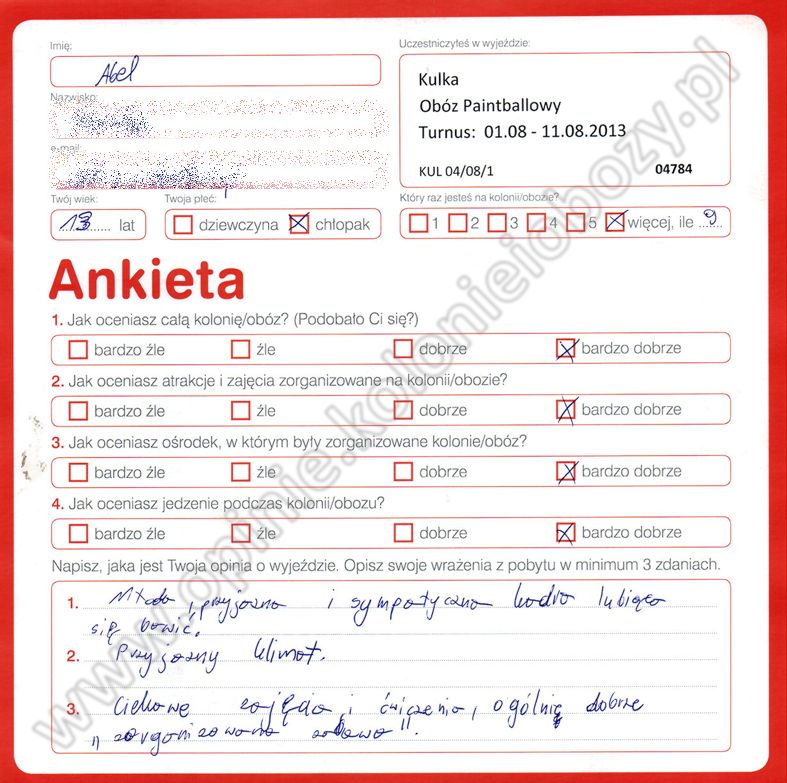 Imię:
Abel
Uczestniczyłeś w wyjeździe:
Kulka
Obóz Paintballowy
Turnus: 01.08 - 11.08.2013
KUL 04/08/1 04784
Nazwisko:
e-mail:
Twój wiek:
13 lat
Twoja płeć:
dziewczyna chłopak
Który raz jesteś na kolonii/obozie?
1 2 3 4 5 więcej, ile 9
Ankieta
1. Jak oceniasz całą kolonię/obóz? (Podobało Ci się?)
bardzo źle źle dobrze bardzo dobrze
2. Jak oceniasz atrakcje i zajęcia zorganizowane na kolonii/obozie?
bardzo źle źle dobrze bardzo dobrze
3. Jak oceniasz ośrodek, w którym były zorganizowane kolonie/obóz?
bardzo źle źle dobrze bardzo dobrze
4. Jak oceniasz jedzenie podczas kolonii/obozu?
bardzo źle źle dobrze bardzo dobrze
Napisz, jaka jest Twoja opinia o wyjeździe. Opisz swoje wrażenia z pobytu w minimum 3 zdaniach.
1. Młoda, przyjazna i sympatyczna kadra lubiąca
się bawić.
2. Przyjazny klimat.
3. Ciekawe zajęcia i ćwiczenia, ogólnie dobrze
"zorganizowana zabawa".
www.opinie.kolonieiobozy.pl